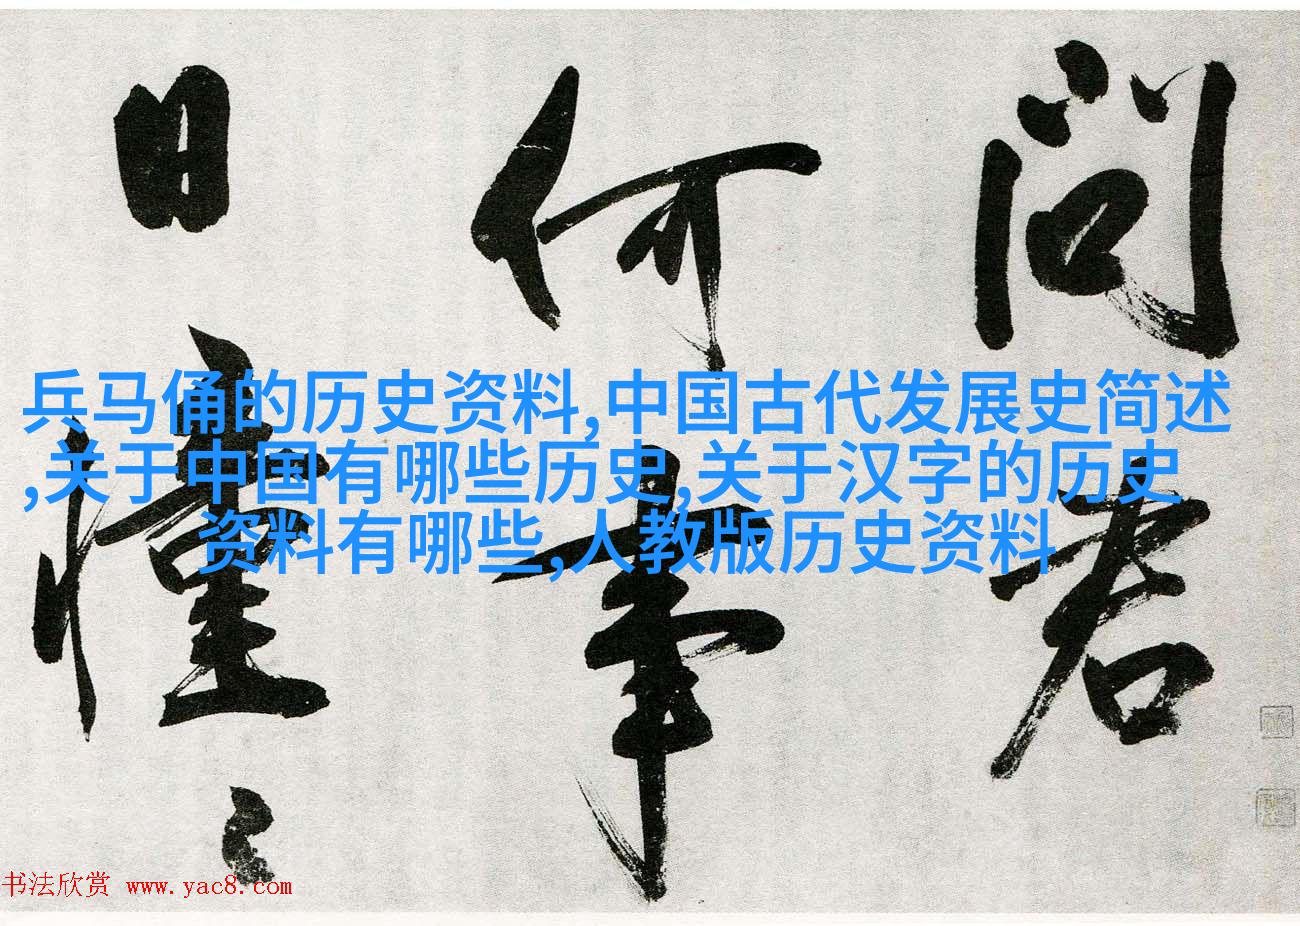 問君
何事
日憧
〻
兵马俑的历史资料,中国古代发展史简述
,关于中国有哪些历史,关于汉字的历史
资料有哪些,人教版历史资料
书法欣赏 www.yac8.com